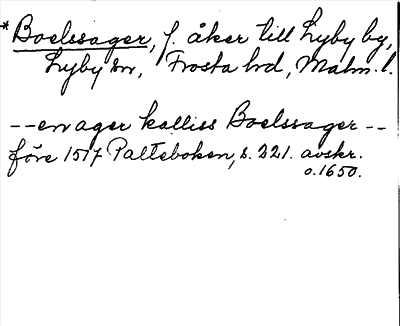 *Boelssager, f. åker till Lyby by,
Lyby sn, Frosta hd, Malm. l.
--en ager kalliss Boelssager--
före 1517 Palteboken, s. 221. avskr.
o. 1650.